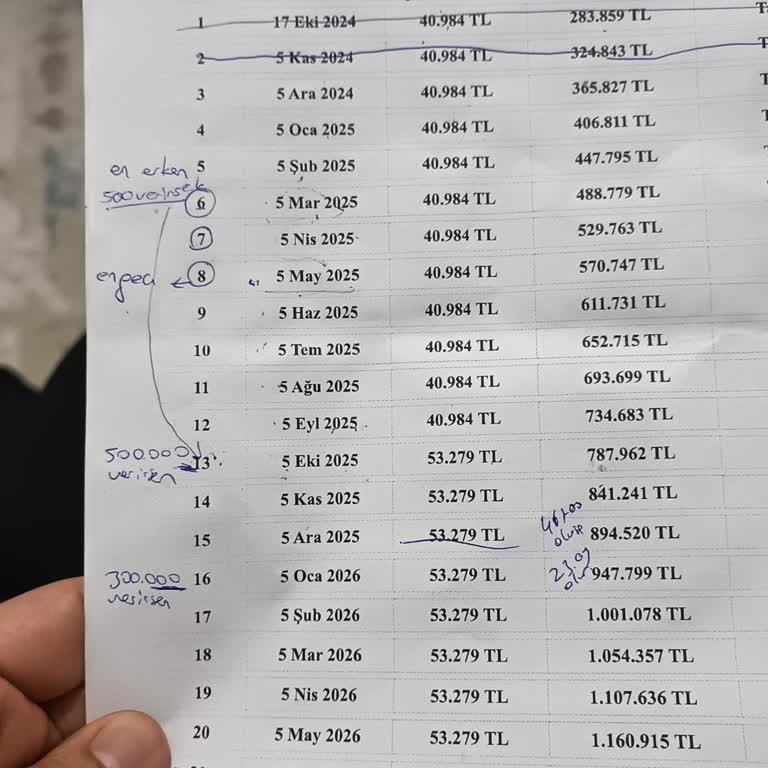 1 17 Eki 2024 40.984 TL 283.859 TL
2 5 Kas 2024 40.984 TL 324.843 TL
3 5 Ara 2024 40.984 TL 365.827 TL
4 5 Oca 2025 40.984 TL 406.811 TL
en erken 5 5 Şub 2025 40.984 TL 447.795 TL
500 verirsek 6 5 Mar 2025 40.984 TL 488.779 TL
7 5 Nis 2025 40.984 TL 529.763 TL
en geci 8 5 May 2025 40.984 TL 570.747 TL
9 5 Haz 2025 40.984 TL 611.731 TL
10 5 Tem 2025 40.984 TL 652.715 TL
11 5 Ağu 2025 40.984 TL 693.699 TL
12 5 Eyl 2025 40.984 TL 734.683 TL
500.000 13 5 Eki 2025 53.279 TL 787.962 TL
verirsen
14 5 Kas 2025 53.279 TL 841.241 TL
15 5 Ara 2025 53.279 TL 894.520 TL
300.000 16 5 Oca 2026 53.279 TL 947.799 TL
verirsen
17 5 Şub 2026 53.279 TL 1.001.078 TL
18 5 Mar 2026 53.279 TL 1.054.357 TL
19 5 Nis 2026 53.279 TL 1.107.636 TL
20 5 May 2026 53.279 TL 1.160.915 TL